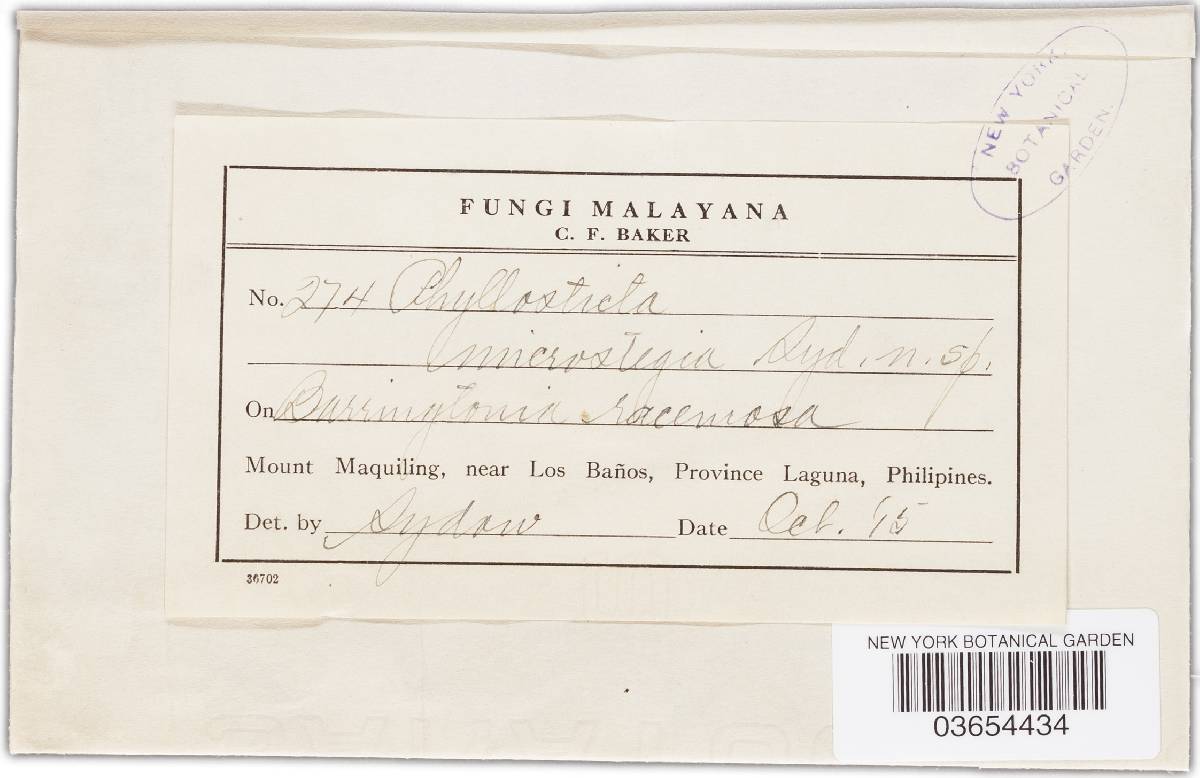 NEW YORK
BOTANICAL
GARDEN.
FUNGI MALAYANA
C. F. BAKER
No. 274 Phyllosticta
microstegia Syd. n. sp.
On Barringtonia racemosa
Mount Maquiling, near Los Baños, Province Laguna, Philipines.
Det. by Sydow Date Oct. '15
36702
NEW YORK BOTANICAL GARDEN
03654434